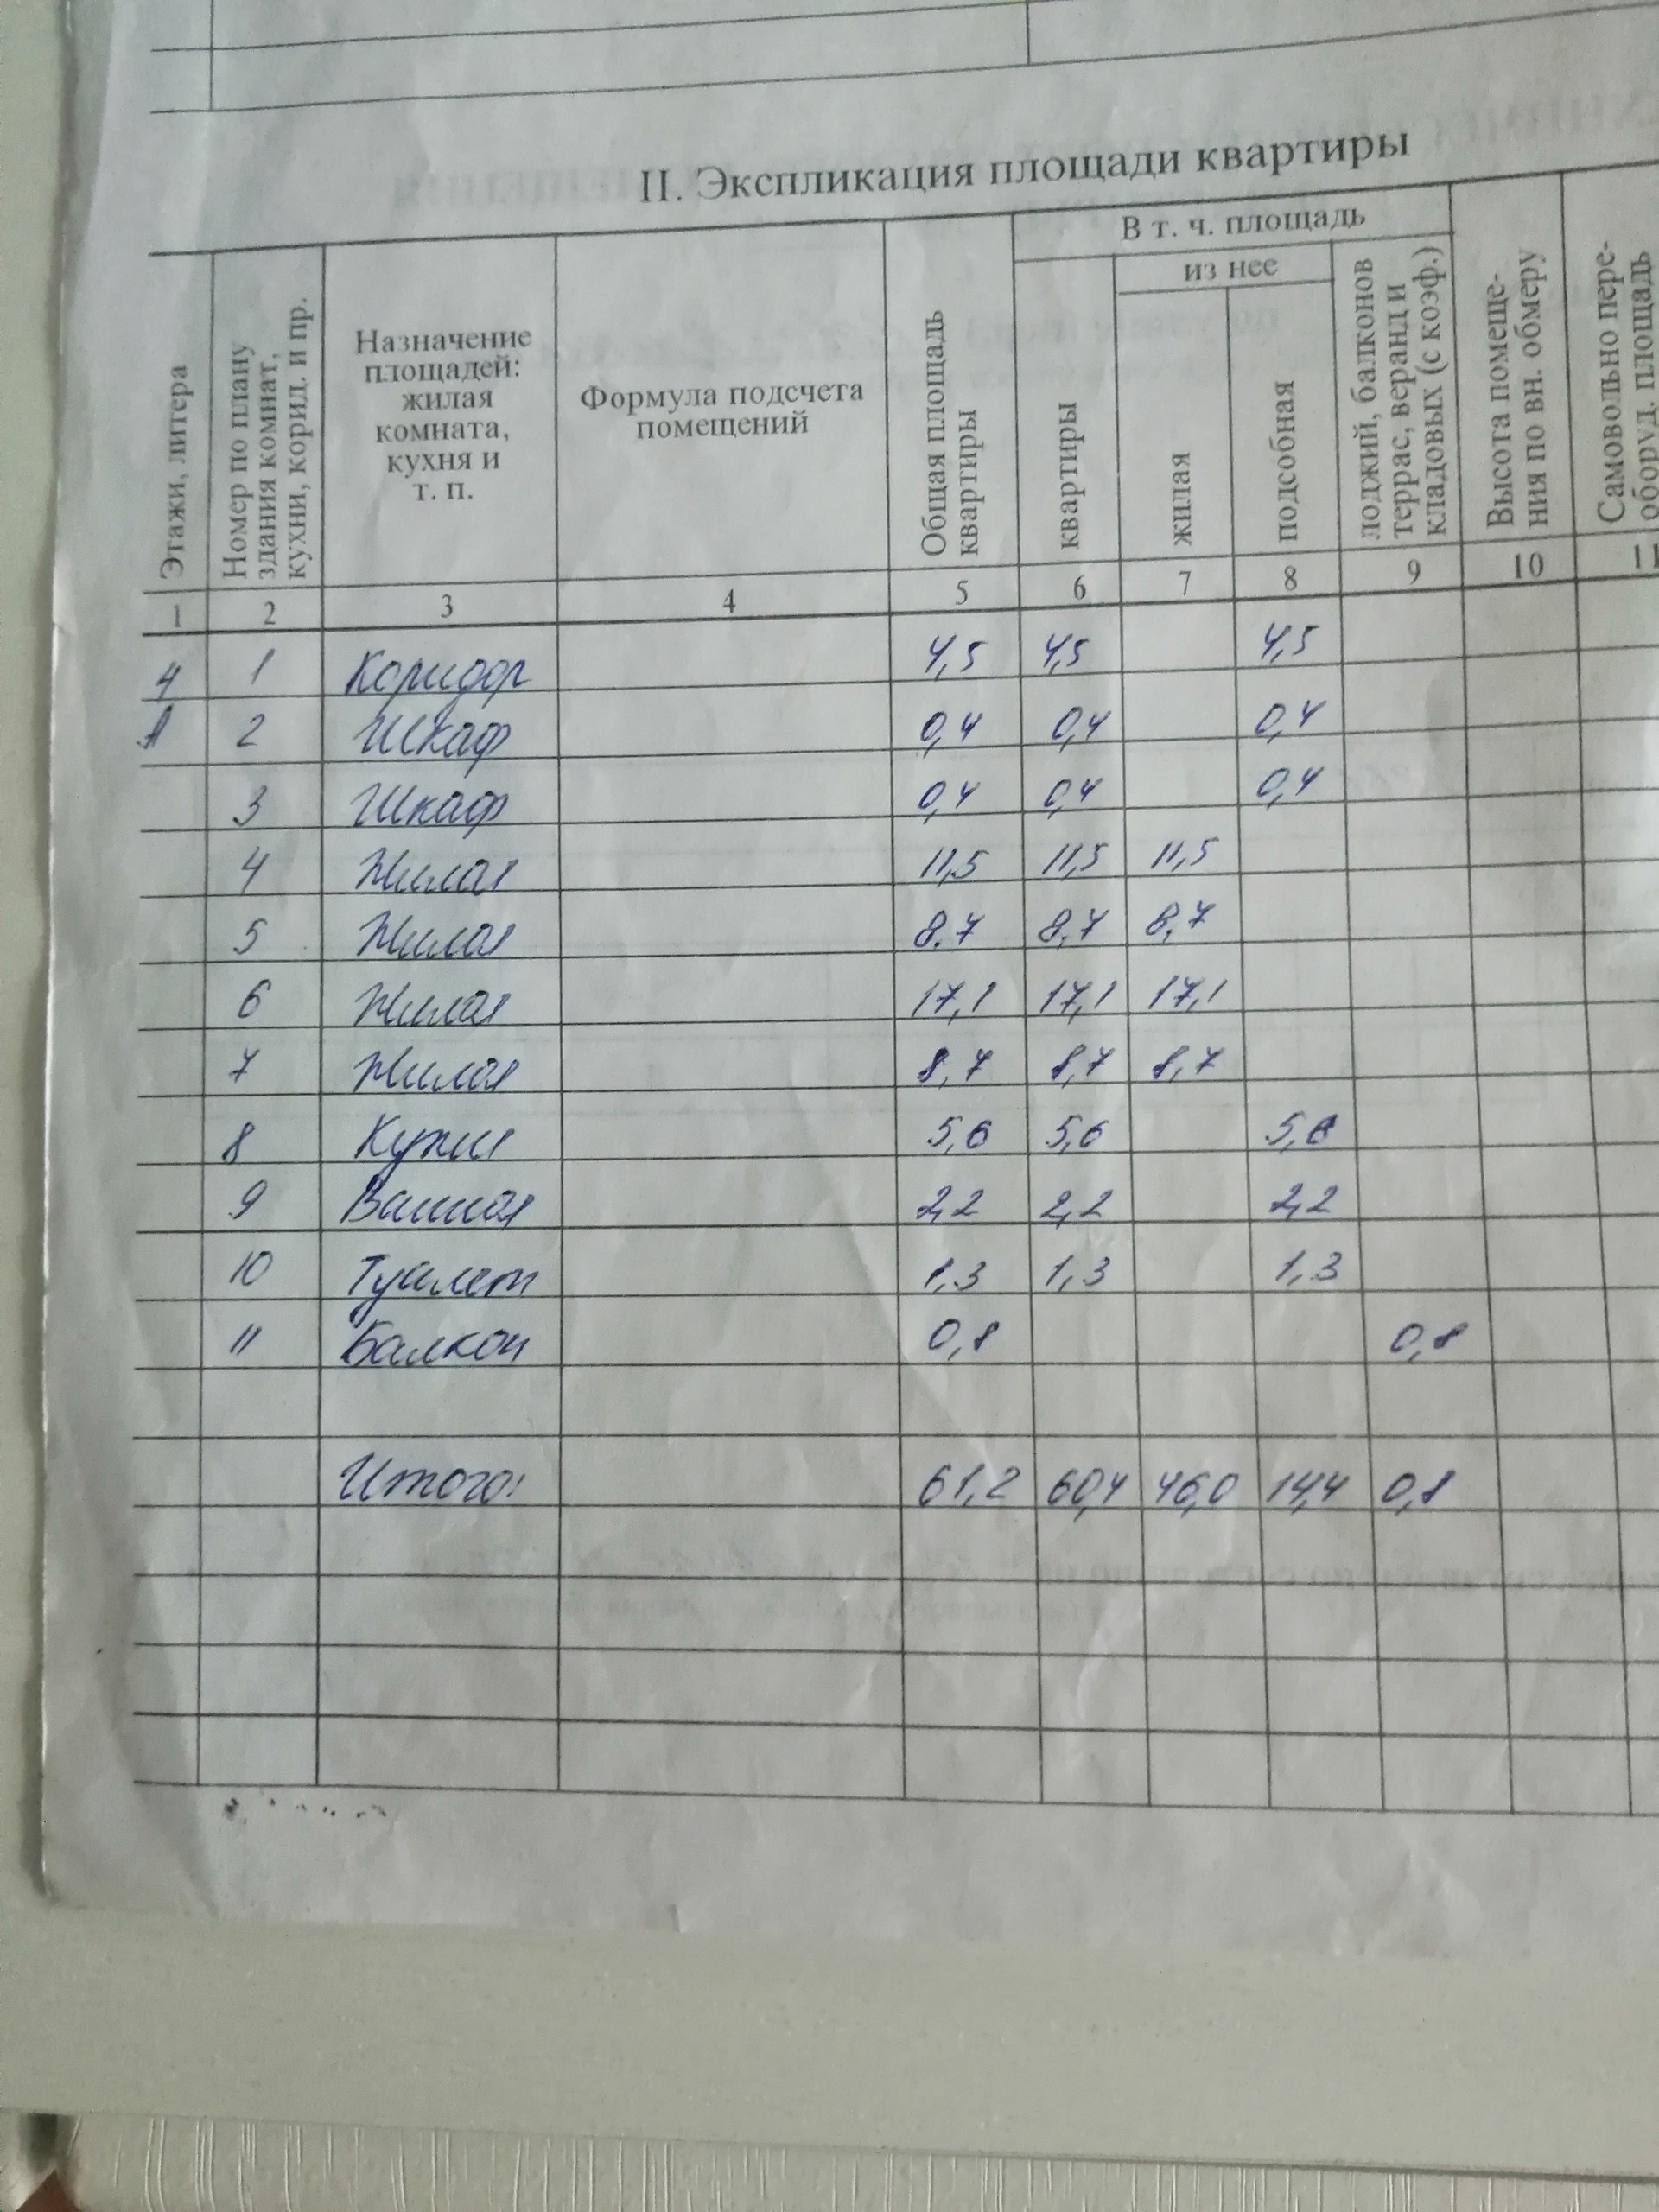 II. Экспликация площади квартиры
Этажи, литера
Номер по плану
здания комнат,
кухни, корид. и пр.
Назначение
площадей:
жилая
комната,
кухня и
т. п.
Формула подсчета
помещений
Общая площадь
квартиры
В т. ч. площадь
квартиры
из нее
жилая
подсобная
лоджий, балконов
террас, веранд и
кладовых (с коэф.)
Высота помеще-
ния по вн. обмеру
Самовольно пере-
оборуд. площадь
1 2 3 4 5 6 7 8 9 10 11
4 1 Коридор 4,5 4,5 4,5
А 2 Шкаф 0,4 0,4 0,4
3 Шкаф 0,4 0,4 0,4
4 Жилая 11,5 11,5 11,5
5 Жилая 8,7 8,7 8,7
6 Жилая 17,1 17,1 17,1
7 Жилая 8,7 8,7 8,7
8 Кухня 5,6 5,6 5,6
9 Ванная 2,2 2,2 2,2
10 Туалет 1,3 1,3 1,3
11 Балкон 0,8 0,8
Итого: 61,2 60,4 46,0 14,4 0,8